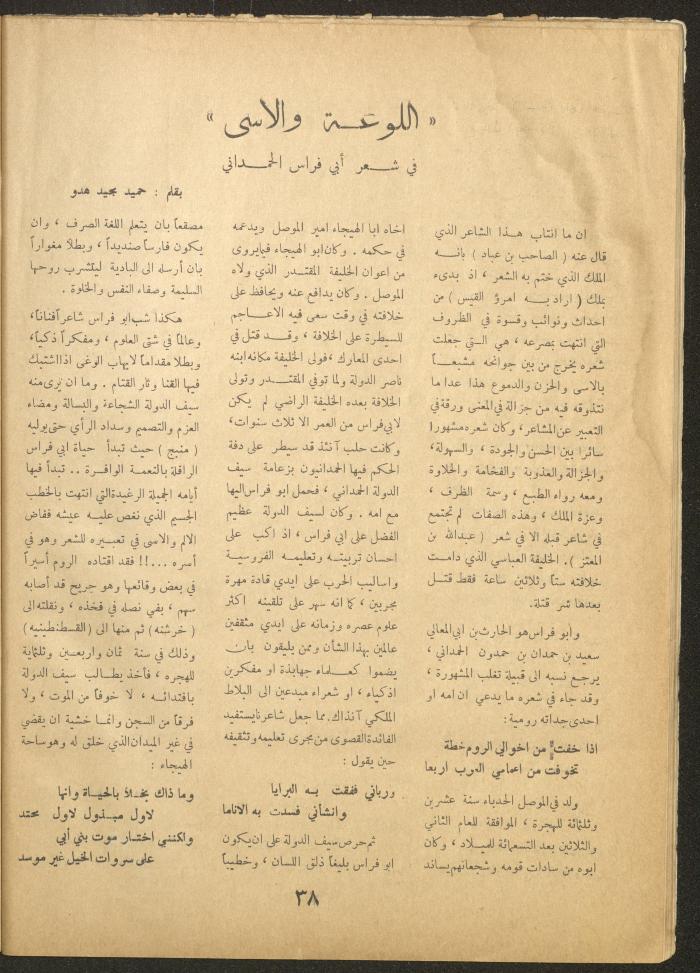 « اللوعـة والاسى »
في شعر أبي فراس الحمداني
بقلم : حميد مجيد هدو
ان ما انتاب هذا الشاعر الذي
قال عنه ( الصاحب بن عباد ) بانه
الملك الذي ختم به الشعر ، اذ بدىء
بملك ( اراد به امرؤ القيس ) من
احداث ونوائب وقسوة في الظروف
التي انتهت بمصرعه ، هي التي جعلت
شعره يخرج من بين جوانحه مشبعاً
بالاسى والحزن والدموع هذا عدا ما
نتذوقه فيه من جزالة في المعنى ورقة في
التعبير عن المشاعر، وكان شعره مشهورا
سائرا بين الحسن والجودة ، والسهولة،
والجزالة والعذوبة والفخامة والحلاوة
ومعه رواء الطبع ، وسمة الظرف ،
وعزة الملك ، وهذه الصفات لم تجتمع
في شاعر قبله الا في شعر ( عبدالله بن
المعتز ). الخليفة العباسي الذي دامت
خلافته ستاً وثلاثين ساعة فقط قتل
بعدها شر قتلة.
وأبو فراس هو الحارث بن ابي المعالي
سعيد بن حمدان بن حمدون الحمداني ،
يرجع نسبه الى قبيلة تغلب المشهورة ،
وقد جاء في شعره ما يدعي ان امه او
احدى جداته رومية:
اذا خفت من اخوالي الروم خطة
تخوفت من اعمامي العرب اربعا
ولد في الموصل الحدباء سنة عشرين
وثلثائة للهجرة ، الموافقة للعام الثاني
والثلاثين بعد التسعمائة للميلاد ، وكان
ابوه من سادات قومه وشجعانهم يساند
اخاه ابا الهيجاء امير الموصل ويدعمه
في حكمه . وكان ابو الهيجاء فيما يروى
من اعوان الخليفة المقتدر الذي ولاه
الموصل . وكان يدافع عنه ويحافظ على
خلافته في وقت سعى فيه الاعاجم
للسيطرة على الخلافة ، وقد قتل في
احدى المعارك ، فولى الخليفة مكانه ابنه
ناصر الدولة ولما توفي المقتدر وتولى
الخلافة بعده الخليفة الراضي لم يكن
لابي فراس من العمر الا ثلاث سنوات،
وكانت حلب آنئذ قد سيطر على دفة
الحكم فيها الحمدانيون بزعامة سيف
الدولة الحمداني ، فحمل ابو فراس اليها
مع امه . وكان لسيف الدولة عظيم
الفضل على ابي فراس ، اذ اكب على
احسان تربيته وتعليمه الفروسية
واساليب الحرب على ايدي قادة مهرة
مجربين ، كما انه سهر على تلقينه اكثر
علوم عصره وزمانه على ايدي مثقفين
عالمين بهذا الشأن وممن يليقون بان
يضموا كعلماء جهابذة او مفكرين
اذكياء ، او شعراء مبدعين الى البلاط
الملكي آنذاك. مما جعل شاعرنا يستفيد
الفائدة القصوى من مجرى تعليمه وتثقيفه
حين يقول :
ورباني ففقت به البرايا
وانشأني فسدت به الاناما
ثم حرص سيف الدولة على ان يكون
ابو فراس بليغاً ذلق اللسان ، وخطيباً
مصقعاً بان يتعلم اللغة الصرف ، وان
يكون فارساً صنديداً ، وبطلا مغواراً
بان أرسله الى البادية ليتشرب روحها
السليمة وصفاء النفس والخلوة .
هكذا شب ابو فراس شاعراً فناناً،
وعالماً في شتى العلوم ، ومفكراً ذكياً،
وبطلا مقداماً لايهاب الوغى اذا اشتبك
فيها القنا وثار القتام . وما ان يرى منه
سيف الدولة الشجاعة والبسالة ومضاء
العزم والتصميم وسداد الرأي حتى يوليه
( منبج ) حيث تبدأ حياة ابي فراس
الرافلة بالنعمة الوافرة .. تبدأ فيها
أيامه الجميلة الرغيدة التي انتهت بالخطب
الجسيم الذي نغص عليه عيشه ففاض
الالم والاسى في تعبيره للشعر وهو في
أسره ...!! فقد اقتاده الروم أسيراً
في بعض وقائعها وهو جريح قد أصابه
سهم ، بقي نصله في فخذه ، ونقلته الى
( خرشنه ) ثم منها الى ( القسطنطينيه )
وذلك في سنة ثمان واربعين وثلثاية
للهجره ، فأخذ يطالب سيف الدولة
بافتدائه ، لا خوفاً من الموت ، ولا
فرقاً من السجن وانما خشية ان يقضي
في غير الميدان الذي خلق له وهو ساحة
الهيجاء :
وما ذاك بخلاً بالحياة وانها
لاول مبذول لاول مجتد
ولكنني اختار موت بني أبي
على سروات الخيل غير موسد
٣٨